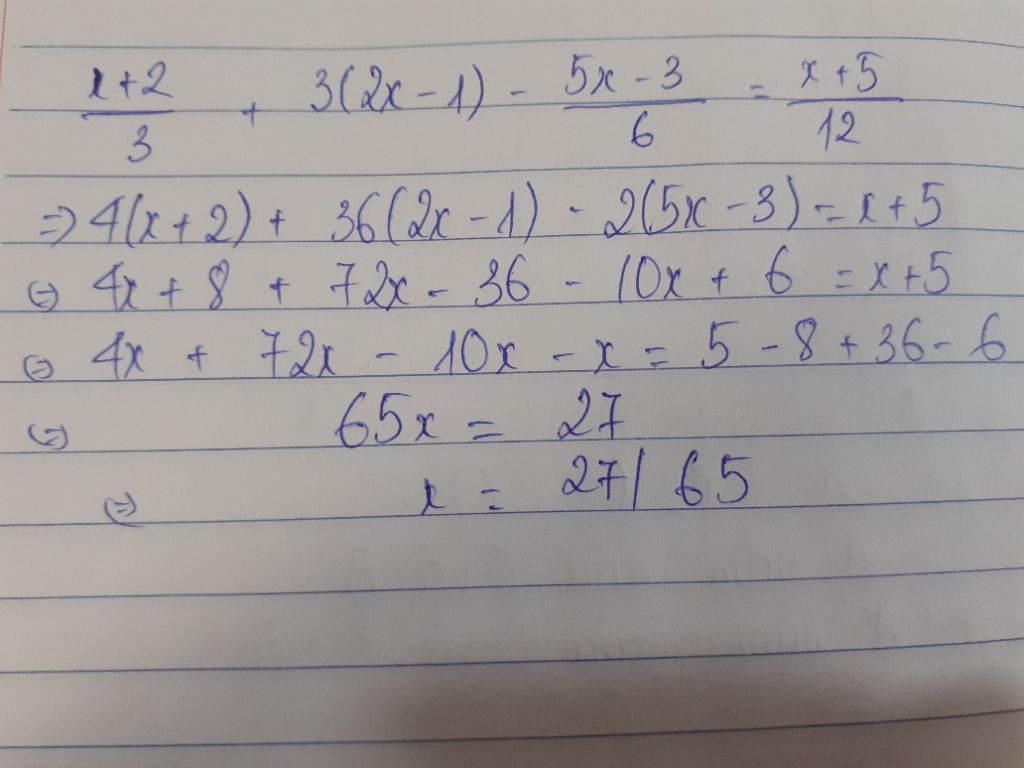 x+2/3 + 3(2x-1) - 5x-3/6 = x+5/12
=> 4(x+2) + 36(2x-1) - 2(5x-3) = x+5
(=) 4x + 8 + 72x - 36 - 10x + 6 = x+5
(=) 4x + 72x - 10x - x = 5 - 8 + 36 - 6
(=) 65x = 27
(=) x = 27/65